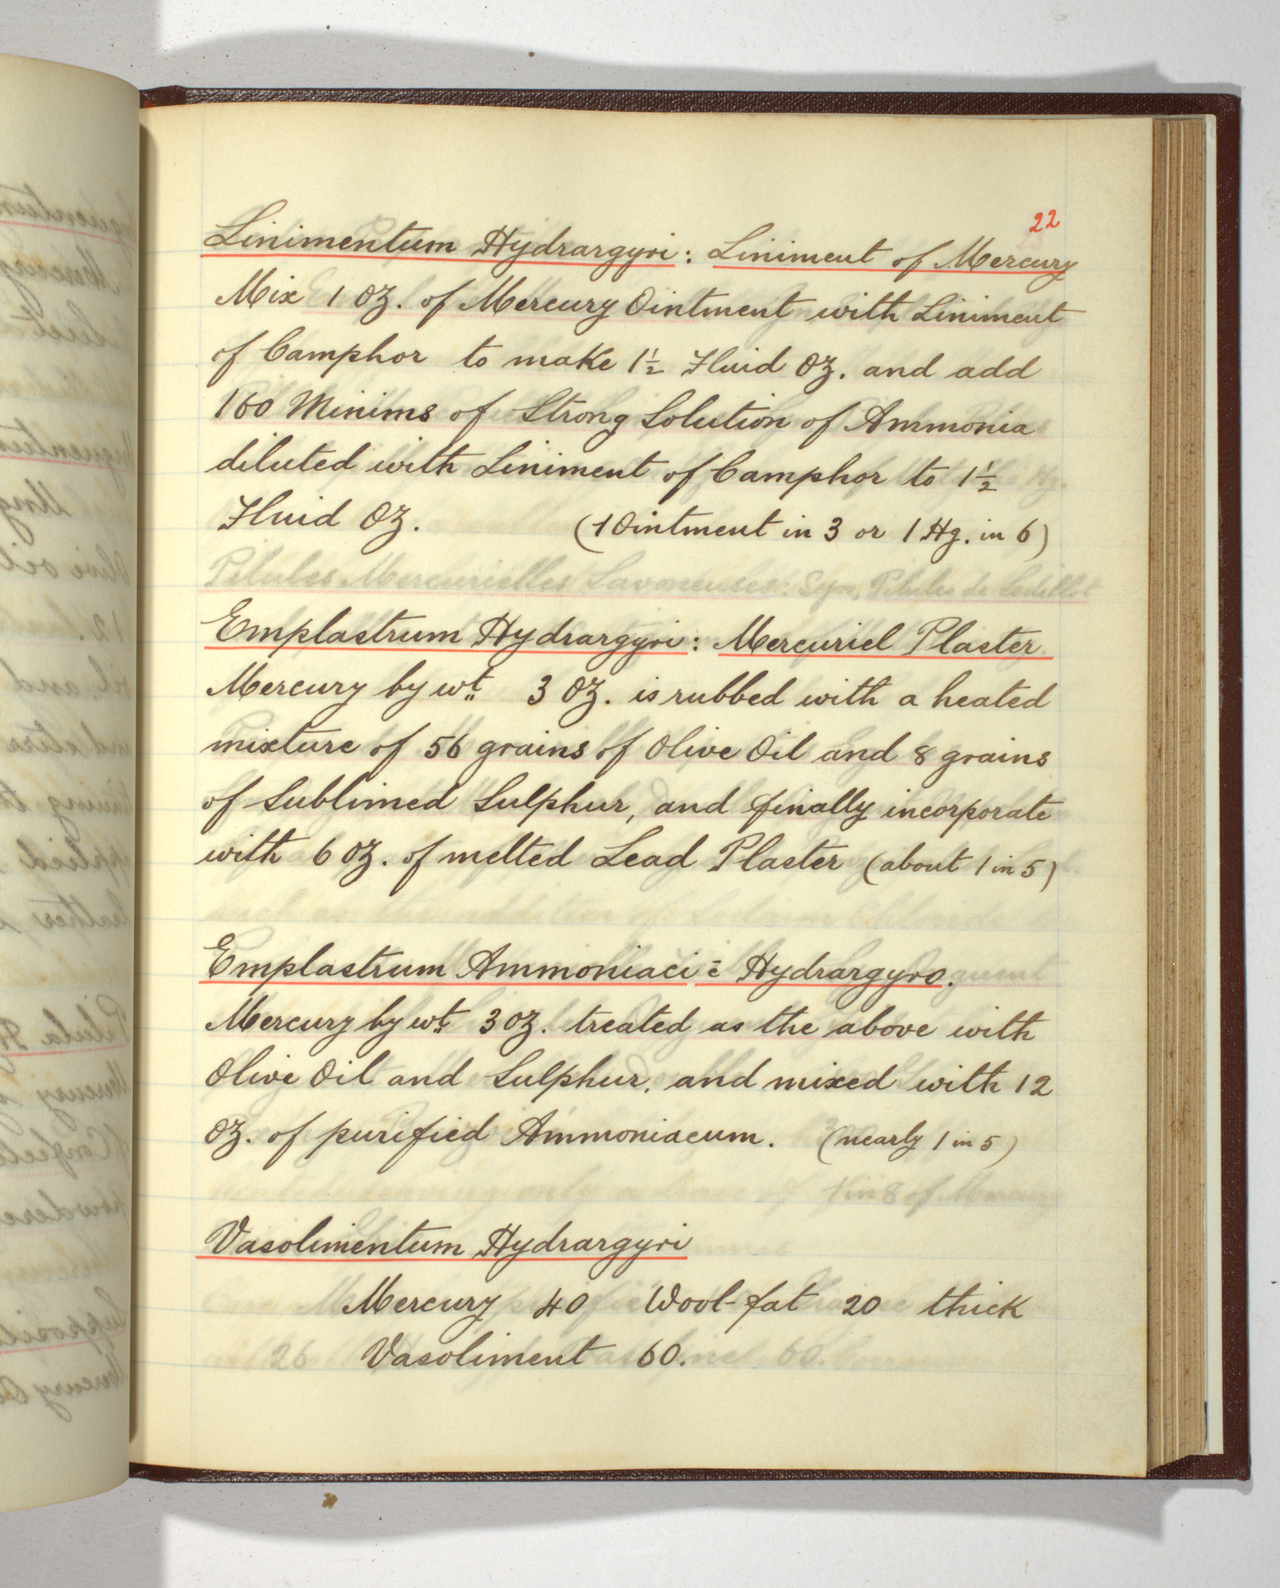 22
Linimentum Hydrargyri: Liniment of Mercury
Mix 1 oz. of Mercury Ointment with Liniment
of Camphor to make 1½ Fluid oz. and add
160 Minims of Strong Solution of Ammonia
diluted with Liniment of Camphor to 1½
Fluid oz. (1 Ointment in 3 or 1 Hg. in 6)
Emplastrum Hydrargyri: Mercuriel Plaster
Mercury by wt 3 oz. is rubbed with a heated
mixture of 56 grains of Olive Oil and 8 grains
of Sublimed Sulphur, and finally incorporate
with 6 oz. of melted Lead Plaster (about 1 in 5)
Emplastrum Ammoniaci c̄ Hydrargyro.
Mercury by wt. 3 oz. treated as the above with
Olive Oil and Sulphur, and mixed with 12
oz. of purified Ammoniacum. (nearly 1 in 5)
Vasolimentum Hydrargyri
Mercury 40 Wool-fat 20 thick
Vasoliment 60.